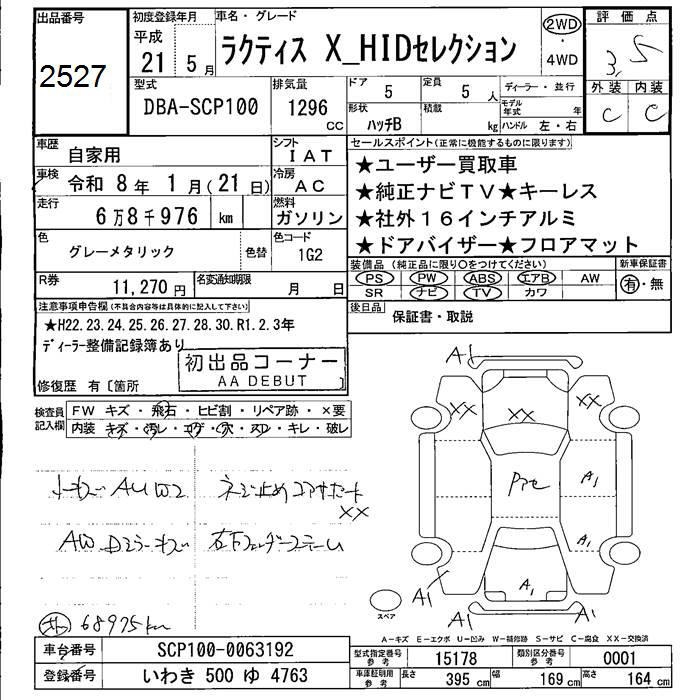 出品番号 初度登録年月 車名・グレード 評価点
2527 平成 21 5月 ラクティス X_HIDセレクション 2WD・4WD 3.5
型式 排気量 ドア 5 定員 5人 ディーラー・並行 外装 内装
DBA-SCP100 1296 cc 形状 ハッチB 積載 kg モデル年式 年 ハンドル 左・右 C C
車歴 自家用 シフト IAT セールスポイント(正常に機能するものに限ります)
★ユーザー買取車
車検 令和 8年 1月(21日) 冷房 AC
★純正ナビTV★キーレス
走行 6万8千976 km 燃料 ガソリン
★社外16インチアルミ
色 グレーメタリック 色替 色コード 1G2
★ドアバイザー★フロアマット
装備品(純正品に限り○をつけてください) 新車保証書
R券 11,270円 名変通知期限 月 日
PS PW ABS エアB AW 有・無
SR ナビ TV カワ
注意事項申告欄(不具合内容等は具体的に記入して下さい)
後日品 保証書・取説
★H22.23.24.25.26.27.28.30.R1.2.3年
ディーラー整備記録簿あり
初出品コーナー
AA DEBUT
修復歴 有〔箇所 〕
検査員記入欄 FW キズ・飛石・ヒビ割・リペア跡・×要
内装 キズ・汚レ・コゲ・穴・スレ・キレ・破レ
A1
XX XX XX
AU W2 ネジ止めコアサポート XX
Pte A1
AW Dミラーキズ 右下フェンダーステーム
A1
A1 A1 A1 A1
スペア
68975km
A-キズ E-エクボ U-凹み W-補修跡 S-サビ C-腐食 XX-交換済
車台番号 SCP100-0063192
型式指定番号 参考 15178 類別区分番号 参考 0001
登録番号 いわき 500 ゆ 4763
車庫証明用 参考 長さ 395 cm 幅 169 cm 高さ 164 cm